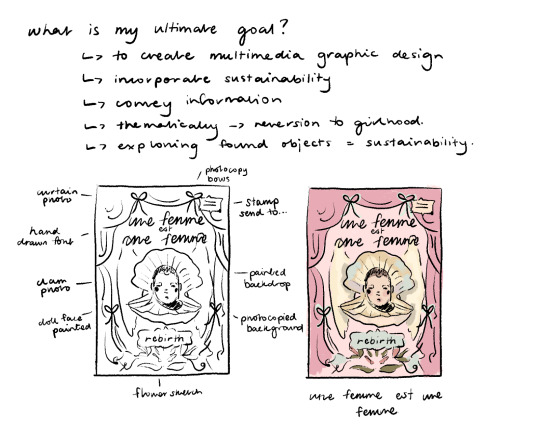 what is my ultimate goal?
↳ to create multimedia graphic design
↳ incorporate sustainability
↳ convey information
↳ thematically → reversion to girlhood.
↳ exploring found objects = sustainability.
photocopy
bows
curtain
photo
stamp
send to...
hand
drawn font
clam
photo
painted
backdrop
doll face
painted
photocopied
background
flower sketch
une femme
est
une femme
rebirth
une femme
est
une femme
rebirth
une femme est une
femme